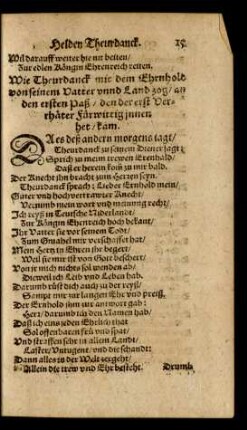 Helden Theurdanck. 15
Wil darauff weiter hie nit beiten/
Zur edlen Küngin Ehrenreich reiten.
Wie Theurdanck mit dem Ehrnhold
von seinem Vatter vnnd Land zog/ an
den ersten Paß/ den der erst Ver-
rhäter Fürwittig innen
het/ kam.
DAes deß andern morgens tagt/
Theurdanck zu seinem Diener sagt:
Sprich zu meim trewen Erenhald/
Daß er herein kom zu mir bald.
Der Knecht ihn bracht zum Herzen sein.
Theurdanck sprach: Lieber Ernhold mein/
Guter vnd hochvertrawter Knecht/
Vernimb mein wort vnd mainung recht/
Ich reyß in Teutsche Niderlandt/
Zur Küngin Ehrenreich hoch bekant/
Ihr Vatter sie vor seinem Todt/
Zum Gmahel mir verschaffet hat/
Mein Hertz in Ehren ihr begert/
Weil sie mir ist von Gott beschert/
Von ir mich nichts sol wenden ab/
Dieweil ich Leib vnd Leben hab.
Darumb rüst dich auch zu der reyß/
Sampt mir zur langen Ehr vnd preiß.
Der Ernhold ihm zur antwort gab:
Herr/ darumb ich den Namen hab/
Daß ich eins jeden Ehrlich that
Sol offenbaren frü vnd spat/
Vnd straffen sehr in allem Landt/
Laster/ Vntugent/ vnd die schandt:
Dann alles in der Welt zergeht/
Allein die trew vnd Ehr besteht.
Drumb